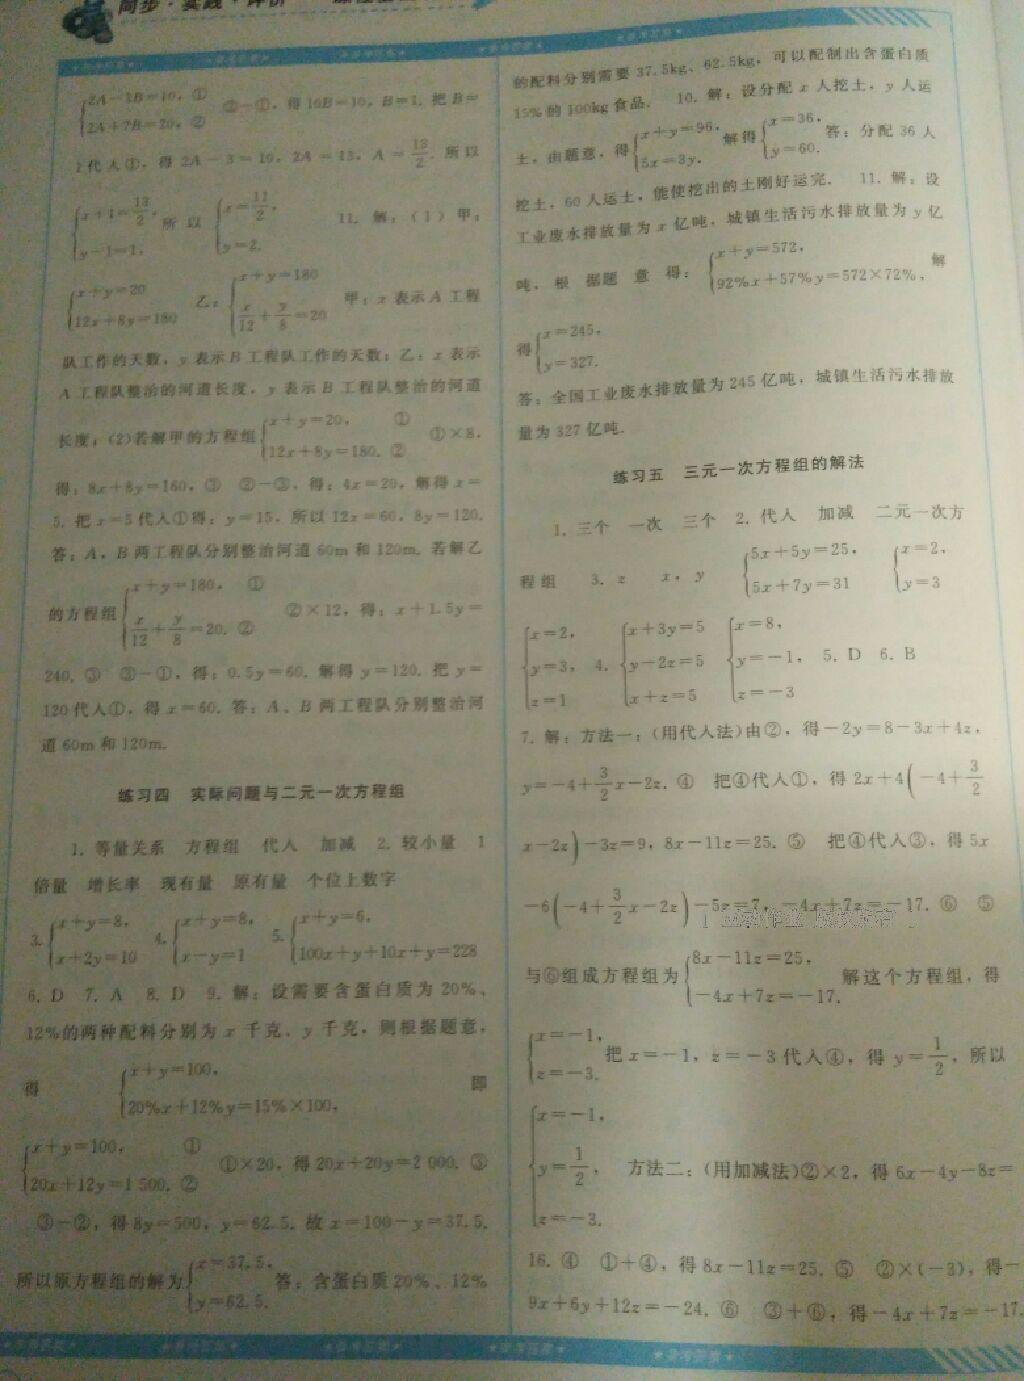 同步·实践·评价
2A-3B=10, ①
2A+7B=20, ②
②-①, 得10B=10, B=1. 把B=
1代入①, 得 2A-3=10, 2A=13, A=13/2. 所以
x+1=13/2,
y-1=1,
所以
x=11/2,
y=2.
11. 解: (1) 甲:
x+y=20
12x+8y=180
乙:
x+y=180
x/12+y/8=20
甲: x 表示 A 工程
队工作的天数, y 表示 B 工程队工作的天数; 乙: x 表示
A 工程队整治的河道长度, y 表示 B 工程队整治的河道
长度; (2)若解甲的方程组
x+y=20, ①
12x+8y=180. ②
①×8,
得: 8x+8y=160, ③ ②-③, 得: 4x=20, 解得 x=
5. 把 x=5 代入①得: y=15. 所以 12x=60, 8y=120.
答: A、B 两工程队分别整治河道 60m 和 120m. 若解乙
的方程组
x+y=180, ①
x/12+y/8=20. ②
②×12, 得: x+1.5y=
240. ③ ③-①, 得: 0.5y=60. 解得 y=120. 把 y=
120代入①, 得 x=60. 答: A、B 两工程队分别整治河
道 60m 和 120m.
练习四 实际问题与二元一次方程组
1. 等量关系 方程组 代入 加减 2. 较小量 1
倍量 增长率 现有量 原有量 个位上数字
3.
x+y=8,
x+2y=10
4.
x+y=8,
x-y=1
5.
x+y=6,
100x+y+10x+y=228
6. D 7. A 8. D 9. 解: 设需要含蛋白质为 20%、
12%的两种配料分别为 x 千克、y 千克, 则根据题意,
得
x+y=100,
20%x+12%y=15%×100,
即
x+y=100, ①
20x+12y=1 500. ②
①×20, 得20x+20y=2 000. ③
③-②, 得8y=500, y=62.5. 故 x=100-y=37.5.
所以原方程组的解为
x=37.5,
y=62.5.
答: 含蛋白质20%、12%
的配料分别需要 37.5kg、62.5kg, 可以配制出含蛋白质
15%的100kg食品. 10. 解: 设分配 x 人挖土, y 人运
土, 由题意, 得
x+y=96,
5x=3y,
解得
x=36,
y=60.
答: 分配 36 人
挖土, 60 人运土, 能使挖出的土刚好运完. 11. 解: 设
工业废水排放量为 x 亿吨, 城镇生活污水排放量为 y 亿
吨, 根 据题 意 得:
x+y=572,
92%x+57%y=572×72%,
解
得
x=245,
y=327.
答: 全国工业废水排放量为 245 亿吨, 城镇生活污水排放
量为 327 亿吨.
练习五 三元一次方程组的解法
1. 三个 一次 三个 2. 代入 加减 二元一次方
程组 3. z x, y
5x+5y=25,
5x+7y=31
x=2,
y=3
x=2,
y=3,
z=1
4.
x+3y=5
y-2z=5
x+z=5
x=8,
y=-1,
z=-3
5. D 6. B
7. 解: 方法一: (用代入法)由②, 得-2y=8-3x+4z,
y=-4+3/2x-2z. ④ 把④代入①, 得 2x+4(-4+3/2
x-2z)-3z=9, 8x-11z=25. ⑤ 把④代入③, 得 5x
-6(-4+3/2x-2z)-5z=7, -4x+7z=-17. ⑥ ⑤
与⑥组成方程组为
8x-11z=25,
-4x+7z=-17.
解这个方程组, 得
x=-1,
z=-3.
把 x=-1, z=-3 代入④, 得 y=1/2, 所以
x=-1,
y=1/2,
z=-3.
方法二: (用加减法)②×2, 得 6x-4y-8z=
16. ④ ①+④, 得 8x-11z=25. ⑤ ②×(-3), 得-
9x+6y+12z=-24. ⑥ ③+⑥, 得-4x+7z=-17.